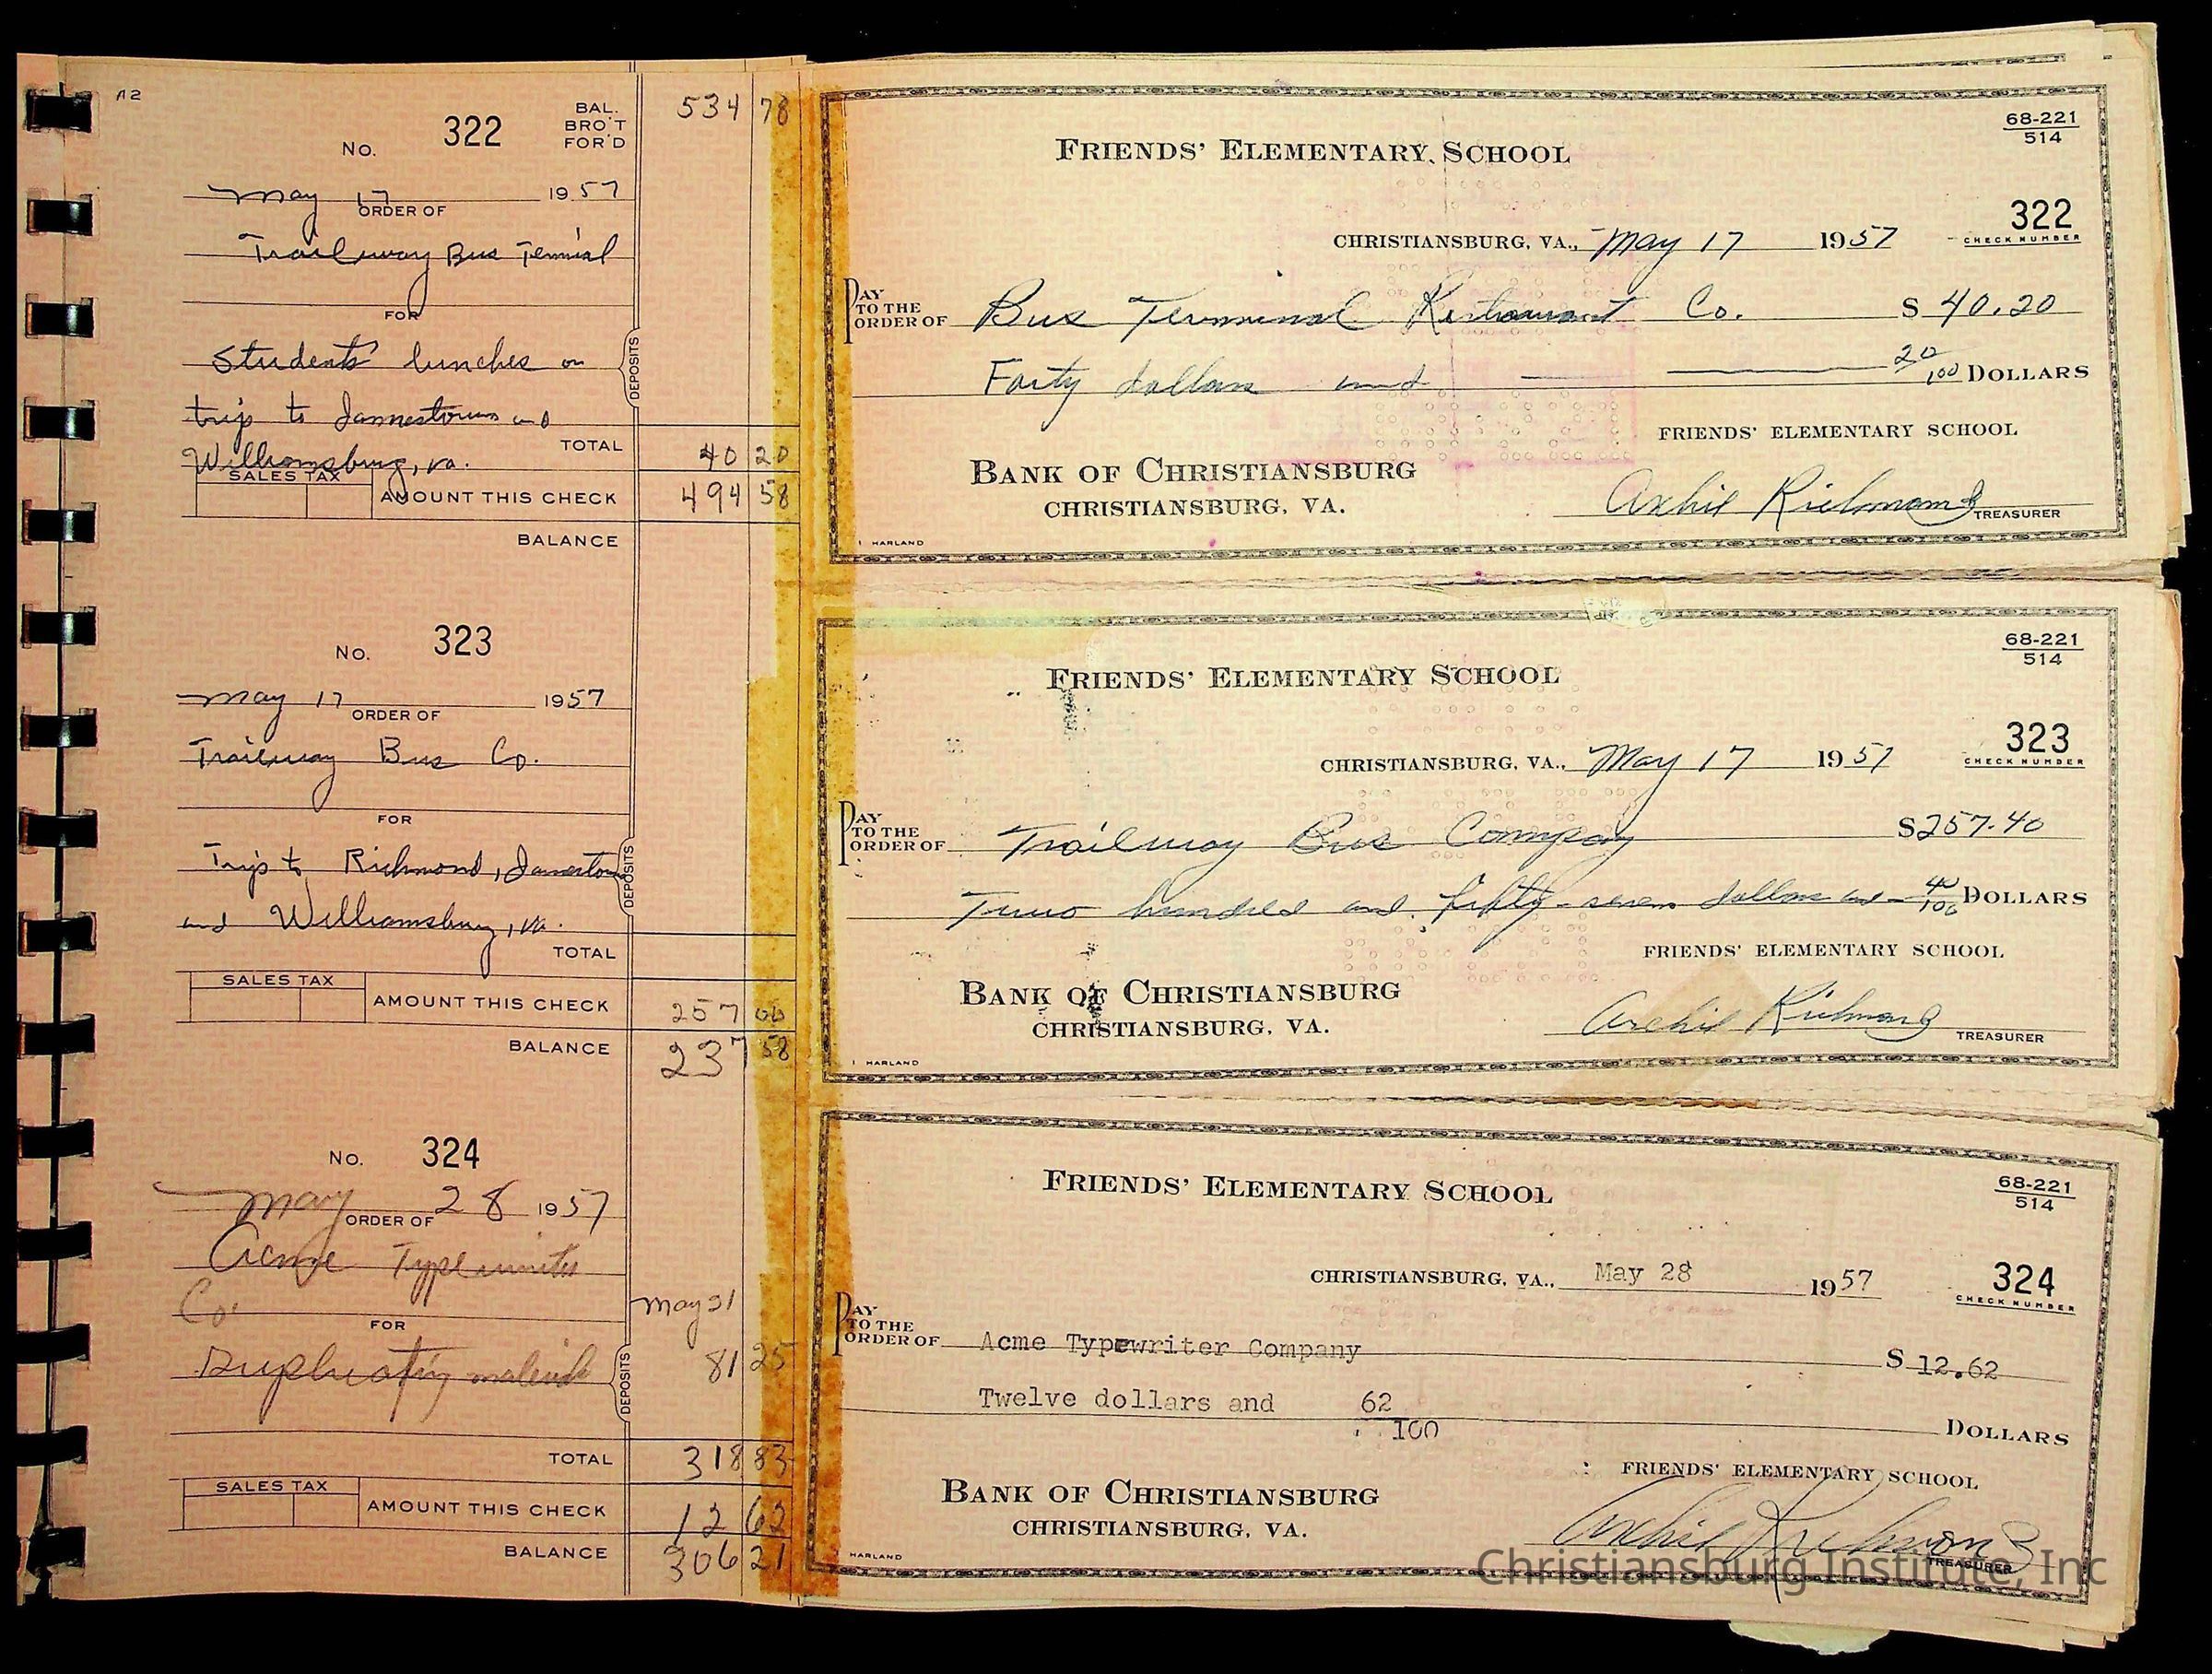 No. 322 BAL. BRO'T FOR'D 534 78
May 17 1957
ORDER OF
Trailway Bus
FOR
Students' lunches on
trip to Jamestown and
Williamsburg, va.
DEPOSITS
TOTAL 40 20
SALES TAX
AMOUNT THIS CHECK 494 58
BALANCE
No. 323
May 17 1957
ORDER OF
Trailway Bus Co.
FOR
Trip to Richmond, Jamestown
and Williamsburg, Va.
DEPOSITS
TOTAL
SALES TAX
AMOUNT THIS CHECK 257
BALANCE 237 58
No. 324
May 28 1957
ORDER OF
Acme Typewriter
Co.
FOR
Duplicating
May 21
DEPOSITS 81 25
TOTAL 318 83
SALES TAX
AMOUNT THIS CHECK 12 62
BALANCE 306 21
FRIENDS' ELEMENTARY SCHOOL
68-221
514
322
CHECK NUMBER
CHRISTIANSBURG, VA., May 17 1957
PAY TO THE ORDER OF Bus Terminal Restaurant Co. $ 40.20
Forty dollars and 20/100 DOLLARS
FRIENDS' ELEMENTARY SCHOOL
BANK OF CHRISTIANSBURG
CHRISTIANSBURG, VA.
Archie Richmond TREASURER
HARLAND
FRIENDS' ELEMENTARY SCHOOL
68-221
514
323
CHECK NUMBER
CHRISTIANSBURG, VA., May 17 1957
PAY TO THE ORDER OF Trailway Bus Company $257.40
Two hundred and fifty-seven dollars and 40/100 DOLLARS
FRIENDS' ELEMENTARY SCHOOL
BANK OF CHRISTIANSBURG
CHRISTIANSBURG, VA.
Archie Richmond TREASURER
HARLAND
FRIENDS' ELEMENTARY SCHOOL
68-221
514
324
CHECK NUMBER
CHRISTIANSBURG, VA., May 28 1957
PAY TO THE ORDER OF Acme Typewriter Company $ 12.62
Twelve dollars and 62
100 DOLLARS
FRIENDS' ELEMENTARY SCHOOL
BANK OF CHRISTIANSBURG
CHRISTIANSBURG, VA.
Archie Richmond TREASURER
HARLAND
Christiansburg Institute, Inc